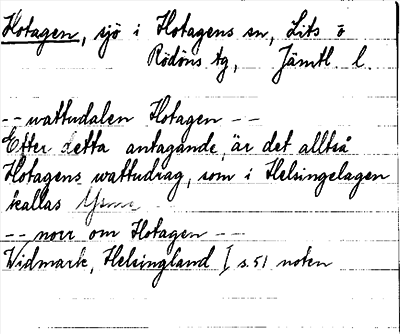 Hotagen, sjö i Hotagens sn, Lits ö
Rödöns tg, Jämtl. l.
-- wattudalen Hotagen --
Efter detta antagande, är det alltså
Hotagens wattudrag, som i Helsingelagen
kallas
-- norr om Hotagen --
Widmark, Helsingland I s. 51 noten